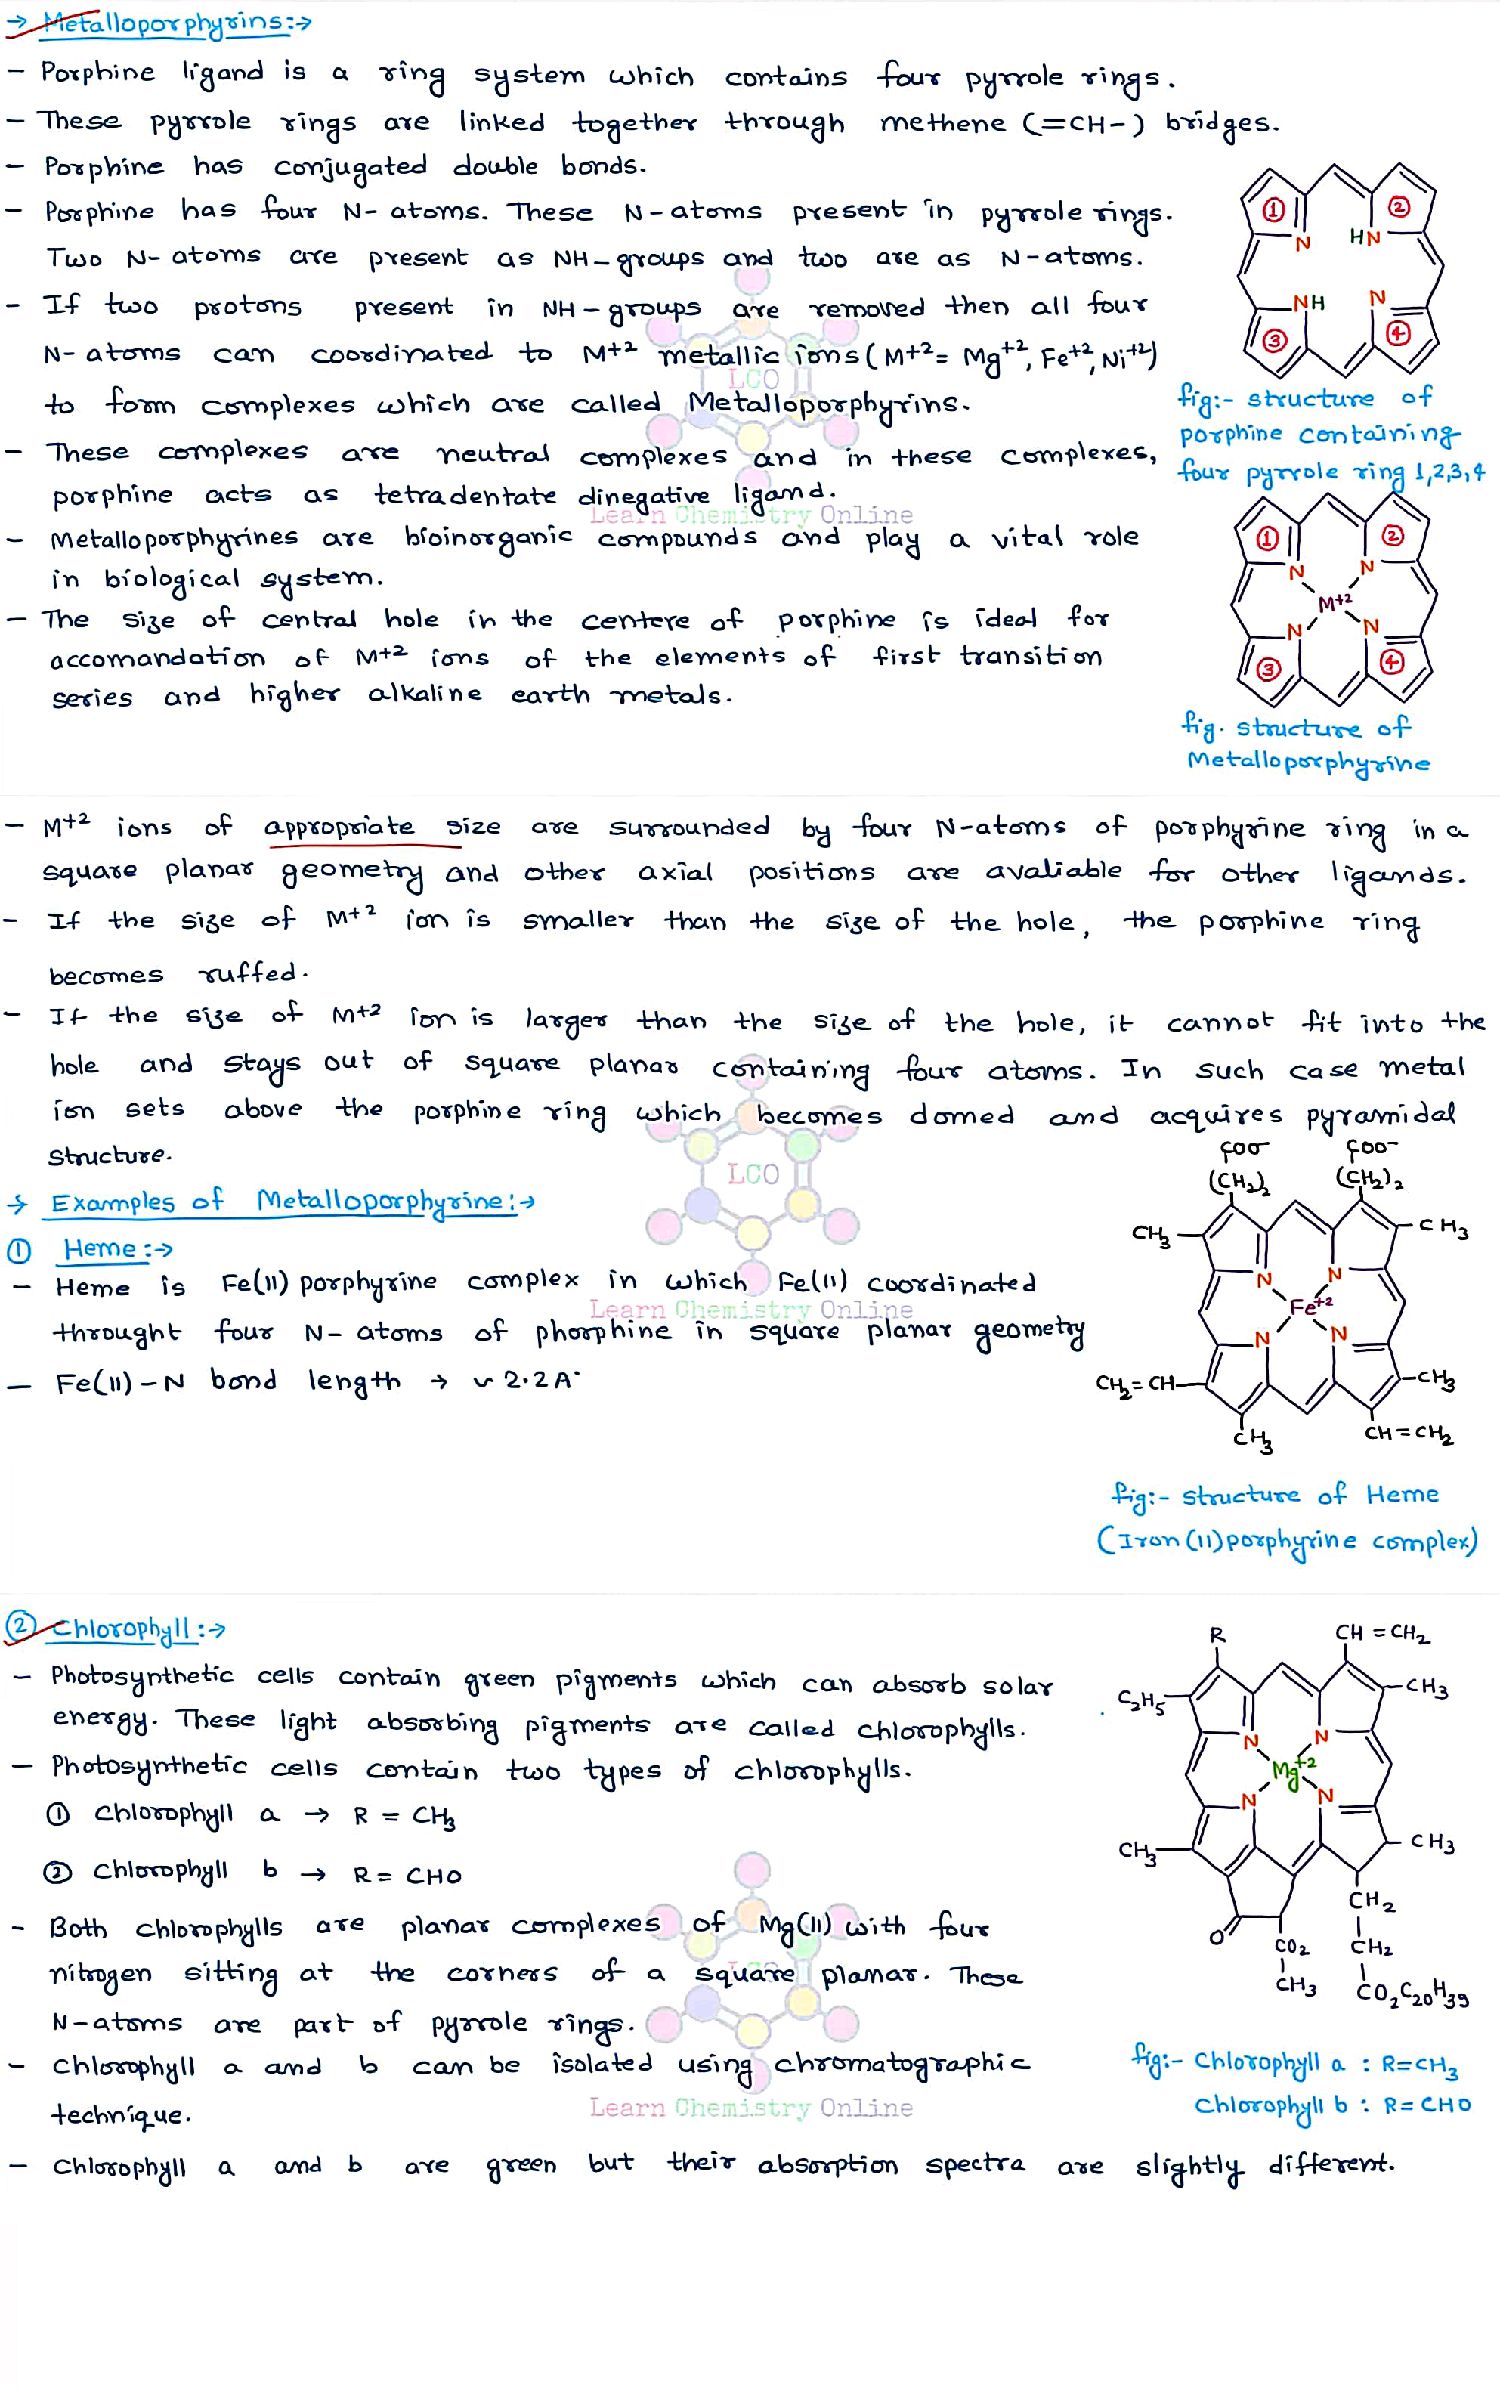 → Metalloporphyrins:→
- Porphine ligand is a ring system which contains four pyrrole rings.
- These pyrrole rings are linked together through methene (=CH-) bridges.
- Porphine has conjugated double bonds.
- Porphine has four N-atoms. These N-atoms present in pyrrole rings.
Two N-atoms are present as NH-groups and two are as N-atoms.
- If two protons present in NH-groups are removed then all four
N-atoms can coordinated to M+2 metallic ions (M+2 = Mg+2, Fe+2, Ni+2)
to form complexes which are called Metalloporphyrins.
- These complexes are neutral complexes and in these complexes,
porphine acts as tetradentate dinegative ligand.
- Metalloporphyrines are bioinorganic compounds and play a vital role
in biological system.
- The size of central hole in the centere of porphine is ideal for
accomandation of M+2 ions of the elements of first transition
series and higher alkaline earth metals.
① ②
N HN
NH N
③ ④
fig:- structure of
porphine containing
four pyrrole ring 1,2,3,4
① ②
N N
M+2
N N
③ ④
fig. structure of
Metalloporphyrine
LCO
Learn Chemistry Online
- M+2 ions of appropriate size are surrounded by four N-atoms of porphyrine ring in a
square planar geometry and other axial positions are avaliable for other ligands.
- If the size of M+2 ion is smaller than the size of the hole, the porphine ring
becomes ruffed.
- If the size of M+2 ion is larger than the size of the hole, it cannot fit into the
hole and stays out of square planar containing four atoms. In such case metal
ion sets above the porphine ring which becomes domed and acquires pyramidal
structure.
→ Examples of Metalloporphyrine:→
① Heme:→
- Heme is Fe(II) porphyrine complex in which Fe(II) coordinated
throught four N-atoms of phorphine in square planar geometry
- Fe(II)-N bond length → ~ 2.2A°
COO- COO-
(CH2)2 (CH2)2
CH3 CH3
N N
Fe+2
N N
CH2=CH CH3
CH3 CH=CH2
fig:- structure of Heme
(Iron(II)porphyrine complex)
LCO
Learn Chemistry Online
② Chlorophyll:→
- Photosynthetic cells contain green pigments which can absorb solar
energy. These light absorbing pigments are called chlorophylls.
- Photosynthetic cells contain two types of chlorophylls.
① Chlorophyll a → R = CH3
② Chlorophyll b → R= CHO
- Both chlorophylls are planar complexes of Mg(II) with four
nitrogen sitting at the corners of a square planar. These
N-atoms are part of pyrrole rings.
- Chlorophyll a and b can be isolated using chromatographic
technique.
- Chlorophyll a and b are green but their absorption spectra are slightly different.
R CH=CH2
C2H5 CH3
N N
Mg+2
N N
CH3 CH3
O CH2
CO2 CH2
CH3 CO2C20H39
fig:- Chlorophyll a : R=CH3
Chlorophyll b : R= CHO
Learn Chemistry Online